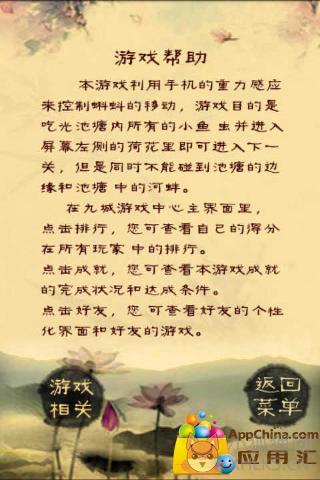 游戏帮助
本游戏利用手机的重力感应
来控制蝌蚪的移动，游戏目的是
吃光池塘内所有的小鱼 虫并进入
屏幕左侧的荷花里即可进入下一
关，但是同时不能碰到池塘的边
缘和池塘 中的河蚌。
在九城游戏中心主界面里，
点击排行，您可查看自己的得分
在所有玩家 中的排行。
点击成就，您可查看本游戏成就
的完成状况和达成条件。
点击好友，您 可查看好友的个性
化界面和好友的游戏。
游戏
相关
返回
菜单
AppChina.com
应用汇